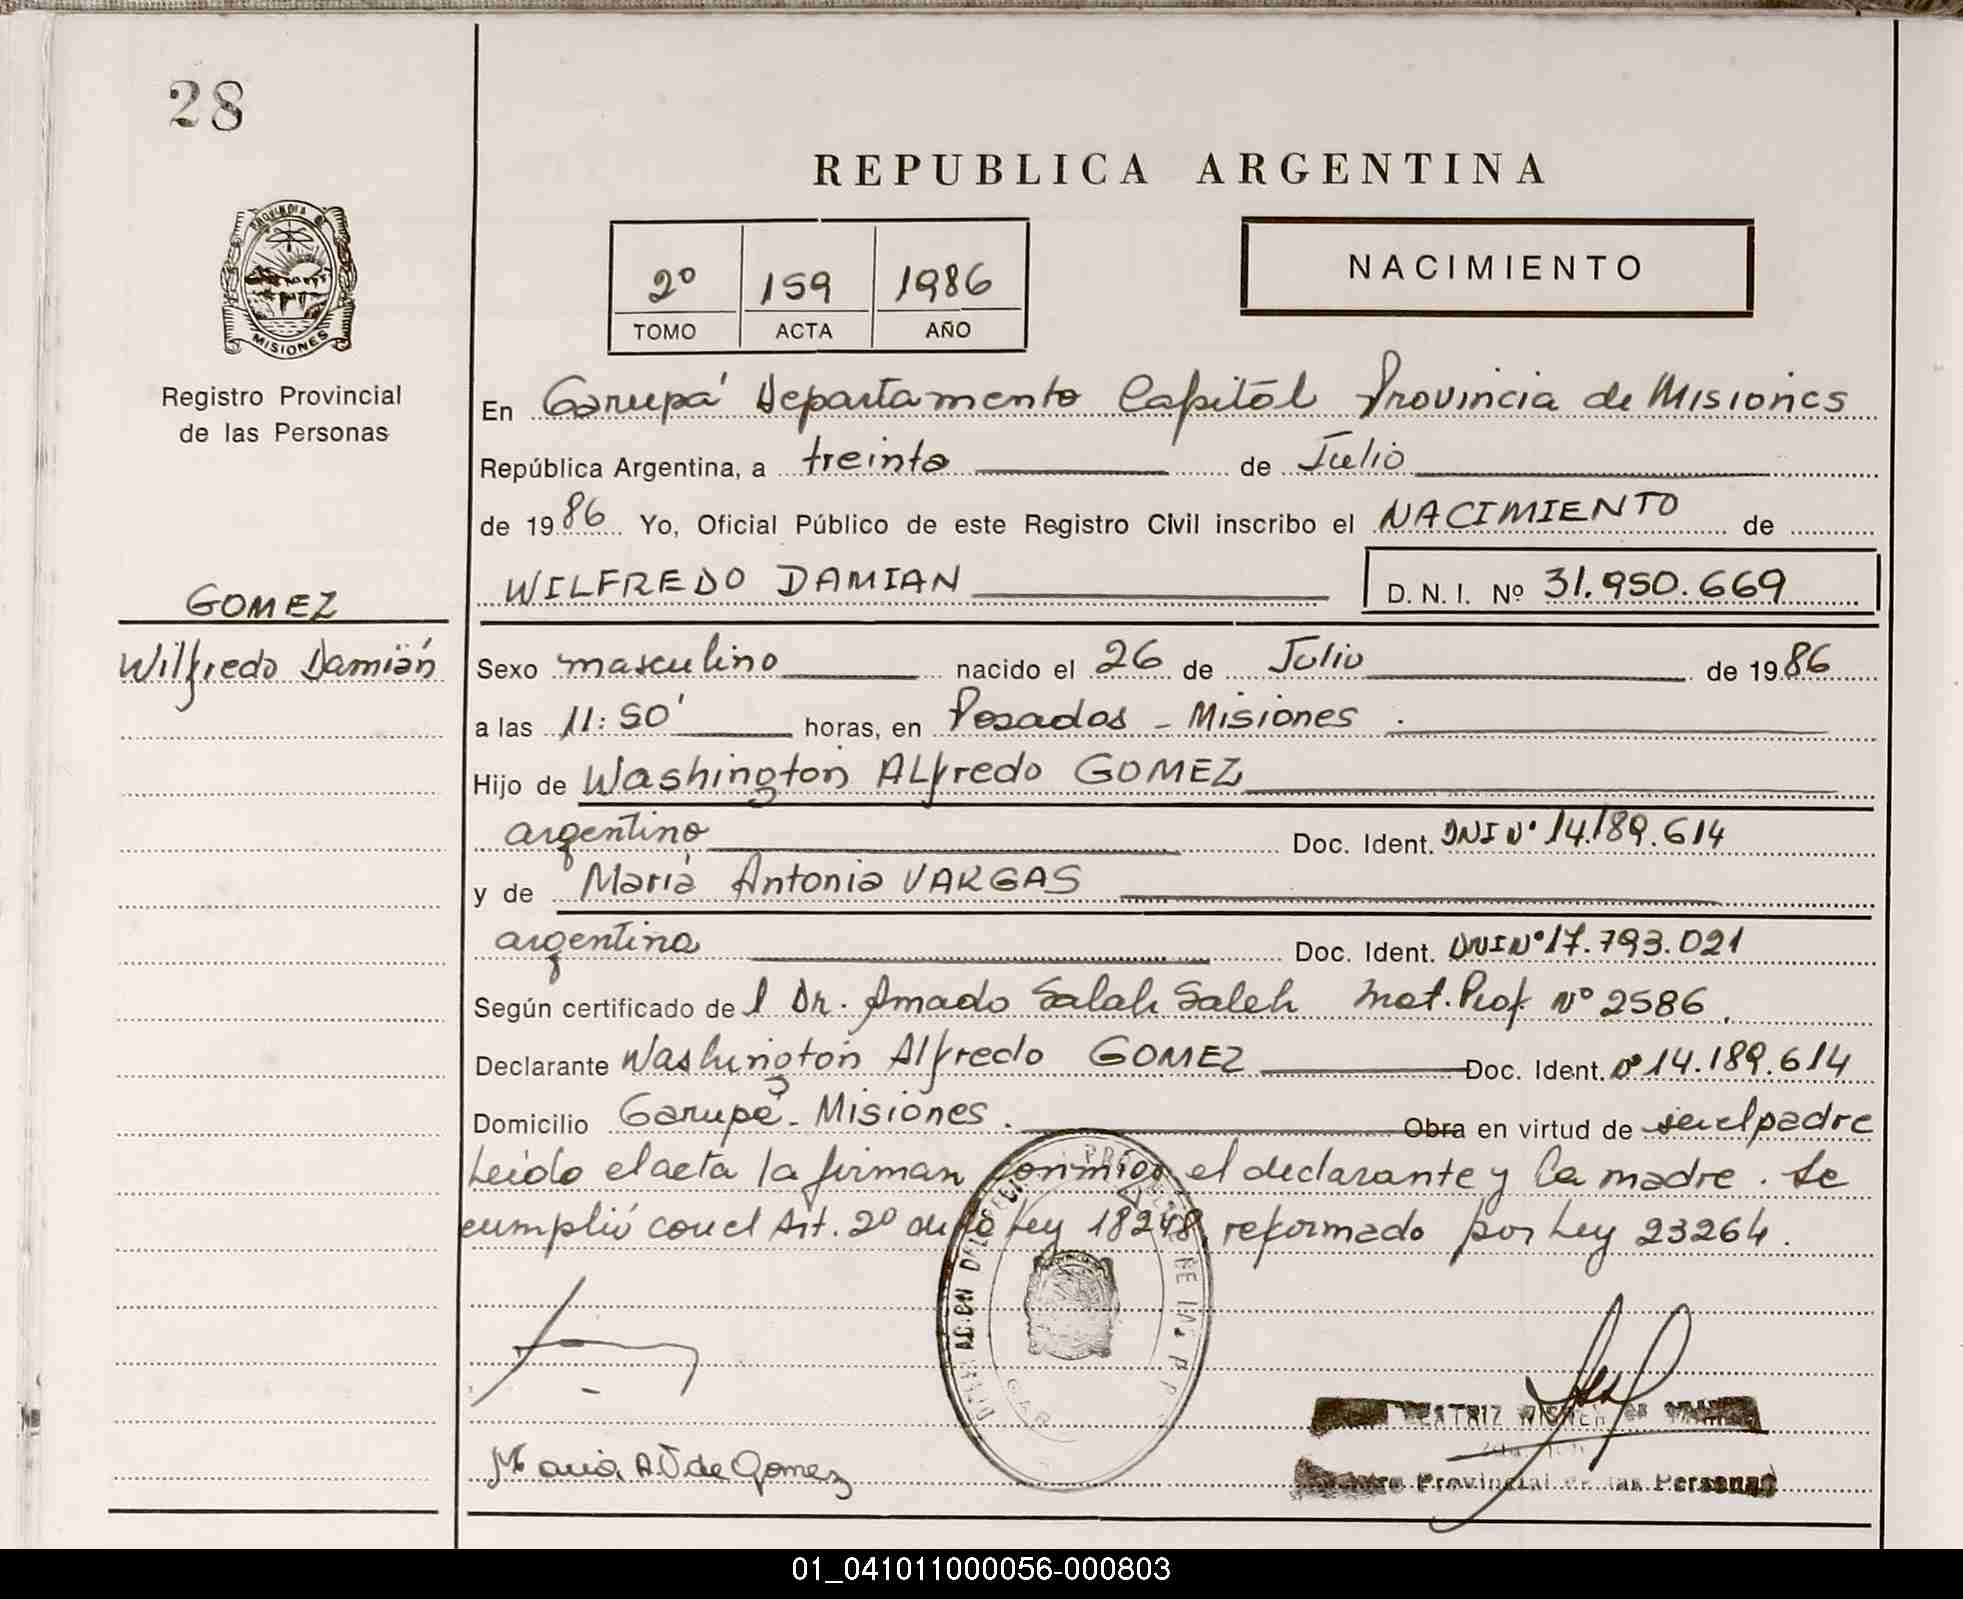 28
REPUBLICA ARGENTINA
PROVINCIA DE
MISIONES
Registro Provincial
de las Personas
2º 159 1986
TOMO ACTA AÑO
NACIMIENTO
En Garupá Departamento Capital Provincia de Misiones
República Argentina, a treinta de Julio
de 1986 Yo, Oficial Público de este Registro Civil inscribo el NACIMIENTO de
WILFREDO DAMIAN D. N. I. Nº 31.950.669
GOMEZ
Wilfredo Damián
Sexo masculino nacido el 26 de Julio de 1986
a las 11:50' horas, en Posadas - Misiones.
Hijo de Washington Alfredo GOMEZ
argentino Doc. Ident. DNI Nº 14.189.614
y de María Antonia VARGAS
argentina Doc. Ident. DNI Nº 17.793.021
Según certificado de l Dr. Amado Salah Saleh Mat. Prof Nº 2586.
Declarante Washington Alfredo GOMEZ Doc. Ident. Nº 14.189.614
Domicilio Garupá - Misiones. Obra en virtud de ser el padre
Leído el acta la firman conmigo el declarante y la madre. Se
cumplió con el Art. 2º de la Ley 18248 reformado por Ley 23264.
María A V de Gomez
Provincial de las Personas
01_041011000056-000803